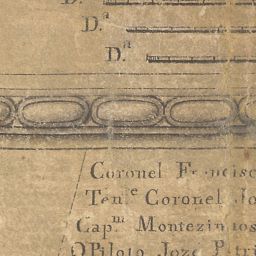 D.ª
D.ª
Coronel Francisc
Ten.ᵉ Coronel Jo
Cap.ᵐ Montezinhos
O Piloto Joze Patri